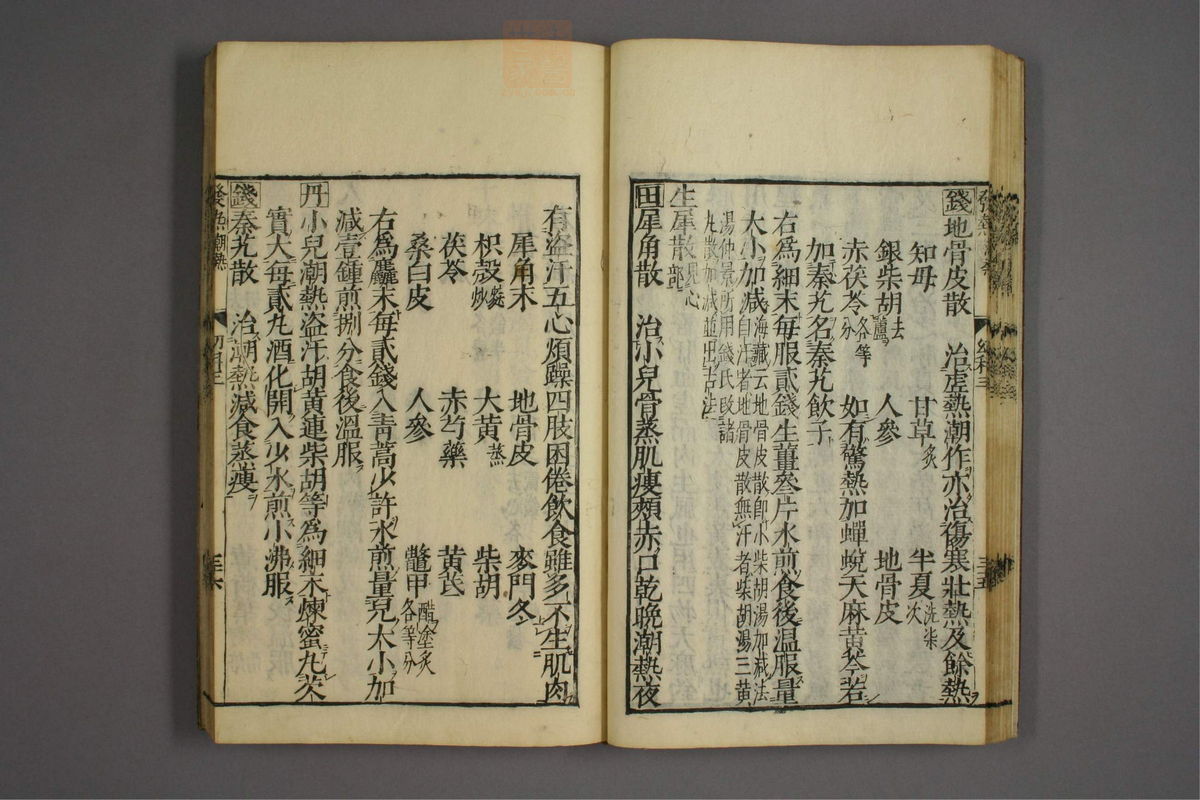 錢地骨皮散　治虛熱潮作亦治傷寒壯熱及餘熱
知母　甘草炙　半夏洗柒次
銀柴胡去蘆　人參　地骨皮
赤茯苓各等分　如有驚熱加蟬蛻天麻黃芩若
加秦艽名秦艽飲子
右為細末每服貳錢生薑叄片水煎食後温服量
大小加減海藏云地骨皮散即小柴胡湯加減法
自汗者地骨皮散無汗者柴胡湯三黃
湯仲景所用錢氏改諸
丸散加減並出古法
生犀散見心部
田犀角散　治小兒骨蒸肌瘦頰赤口乾晚潮熱夜
有盜汗五心煩躁四肢困倦飲食雖多不生肌肉
犀角末　地骨皮　麥門冬
枳殼麩炒　大黃蒸　柴胡
茯苓　赤芍藥　黃芪
桑白皮　人參　鼈甲醋塗炙各等分
右為麤末每貳錢入青蒿少許水煎量兒大小加
減壹鍾煎捌分食後溫服
丹小兒潮熱盜汗胡黃連柴胡等為細末煉蜜丸芡
實大每貳丸酒化開入少水煎小沸服
錢秦艽散　治潮熱減食蒸瘦
發熱潮熱
幼科三